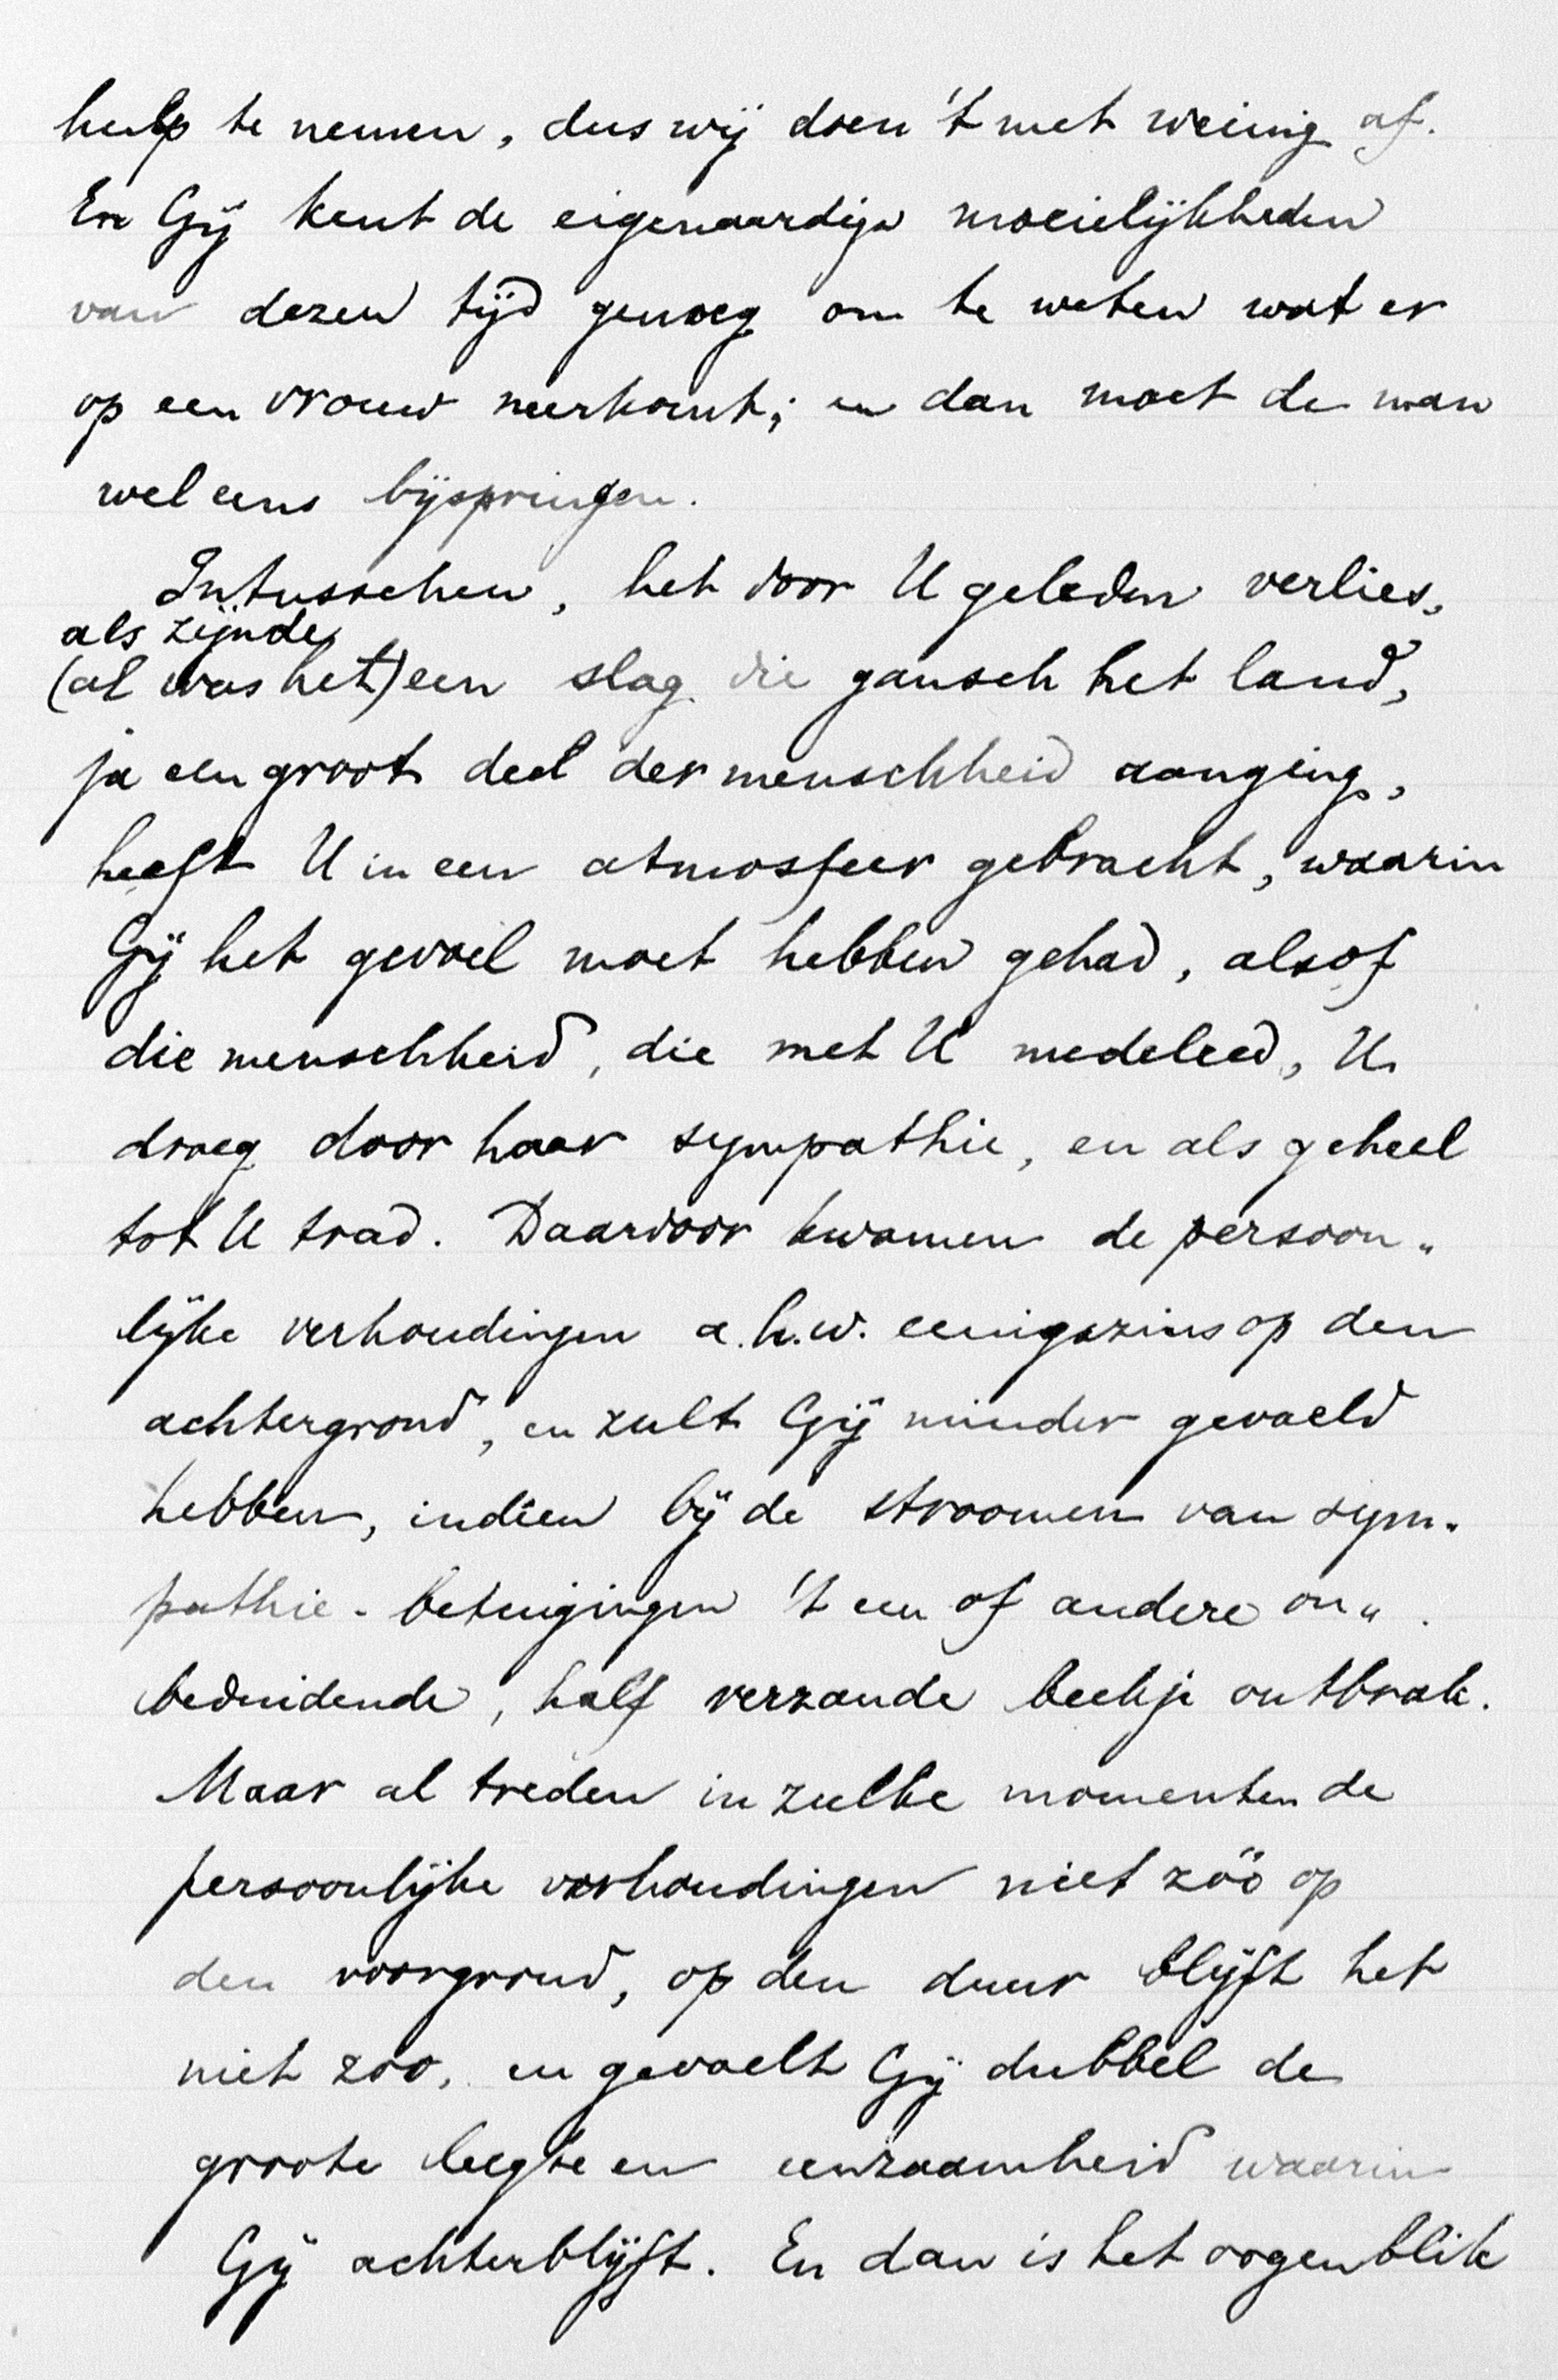 hulp te nemen, dus wij doen 't met weinig af.
En Gij kent de eigenaardige moeielijkheden
van dezen tijd genoeg om te weten wat er
op een vrouw neerkomt; en dan moet de man
wel eens bijspringen.
Intusschen, het door U geleden verlies,
als zijnde
(al was het) een slag die gansch het land,
ja een groot deel der menschheid aanging,
heeft U in een atmosfeer gebracht, waarin
Gij het gevoel moet hebben gehad, alsof
die menschheid, die met U medeleed, U
droeg door haar sympathie, en als geheel
tot U trad. Daardoor kwamen de persoon„
lijke verhoudingen a.h.w. eenigszins op den
achtergrond, en zult Gij minder gevoeld
hebben, indien bij de stroomen van sym„
pathie-betuigingen 't een of andere on„
beduidende, half verzande beekje ontbrak.
Maar al treden in zulke momenten de
persoonlijke verhoudingen niet zóó op
den voorgrond, op den duur blijft het
niet zoo, en gevoelt Gij dubbel de
groote leegte en eenzaamheid waarin
Gij achterblijft. En dan is het oogenblik